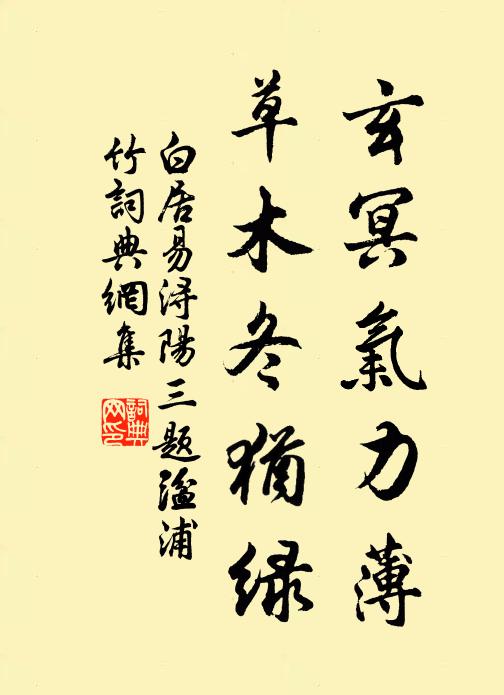 玄冥氣力薄
草木冬猶绿
白居易浔陽三题湓浦
竹詞典網集
詞典
网印